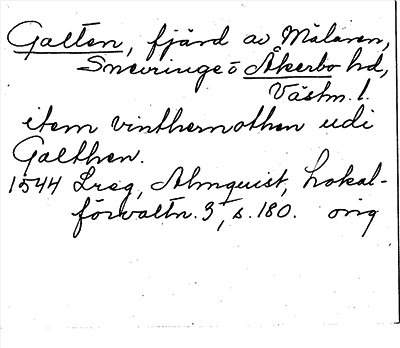 Galten, fjärd av Mälaren,
Snevringe o Åkerbo hd,
Västm. l.
item vinthernothen udi
Galthen.
1544 Lreg, Almquist, Lokal-
förvaltn. 3, s. 180. orig